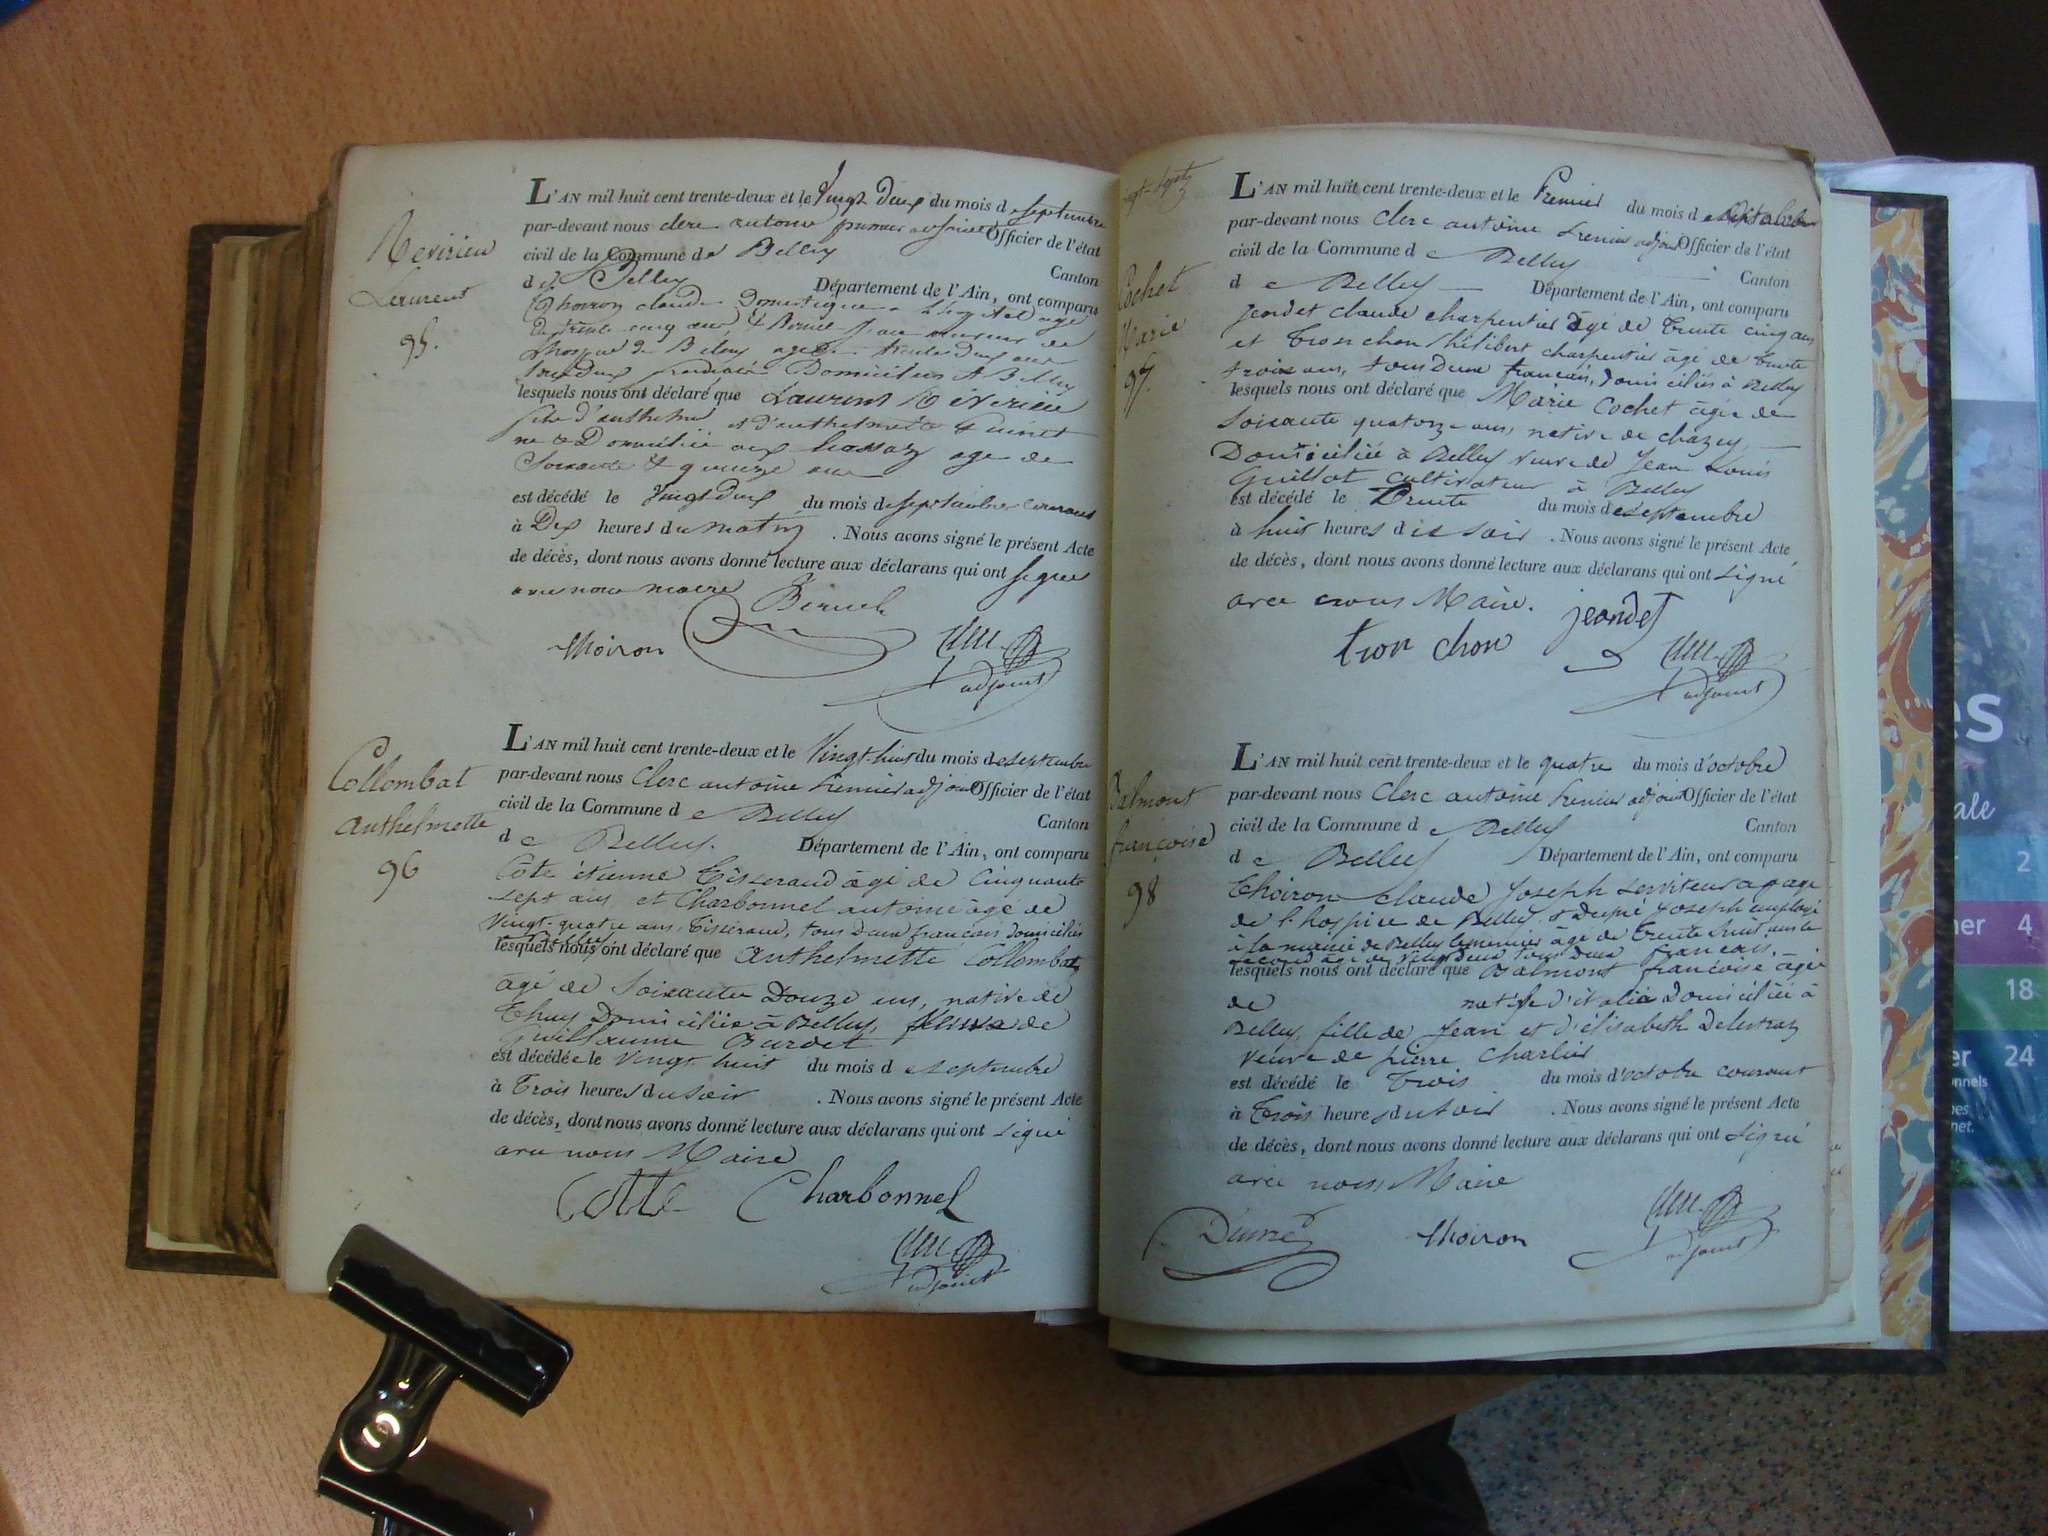 Revirieu
Laurent
95.
L'AN mil huit cent trente-deux et le Vingt Deux du mois d e septembre
par-devant nous clerc antoine premier adjoint Officier de l'état
civil de la Commune de Belley
d e Belley Canton
Département de l'Ain, ont comparu
Thoiron claude Domestique a age
de trente cinq ans, & Bernel
de Belley age de trente deux ans
Domiciliés A Belley
lesquels nous ont déclaré que Laurent Révirieu
fils d'anthelme et d'anthelmette
ne & Domicilié age de
Soixante & quinze ans
est décédé le Vingt Deux du mois de septembre courant
à Dix heures du matin . Nous avons signé le présent Acte
de décès, dont nous avons donné lecture aux déclarans qui ont signé
avec nous maire
thoiron
adjoint
Collombat
anthelmette
96
L'AN mil huit cent trente-deux et le Vingt-huit du mois de septembre
par-devant nous Clerc antoine Premier adjoint Officier de l'état
civil de la Commune d e Belley
Canton
d e Belley. Département de l'Ain, ont comparu
Côte étienne Tisserand âgé de Cinquante
sept ans, et Charbonnel antoine âgé de
Vingt-quatre ans, Tisserand, tous Deux français domiciliés
lesquels nous ont déclaré que anthelmette Collombat
âgé de Soixante Douze ans, native de
Thuy Domiciliée à Belley, de
Guillaume Burdet
est décédée le Vingt huit du mois d e septembre
à Trois heures du soir . Nous avons signé le présent Acte
de décès, dont nous avons donné lecture aux déclarans qui ont signé
avec nous Maire
Cotte Charbonnel
adjoint
vingt-sept
Cochet
Marie
97.
L'AN mil huit cent trente-deux et le Premier du mois d
par-devant nous Clerc antoine Premier adjoint Officier de l'état
civil de la Commune d e Belley
Canton
d e Belley Département de l'Ain, ont comparu
jeandet claude charpentier âgé de Trente cinq ans
et Tronchon hélibert charpentier âgé de Trente
trois ans, tous Deux français, domiciliés à Belley
lesquels nous ont déclaré que Marie Cochet âgée de
Soixante quatorze ans, native de chazey,
Domiciliée à Belley veuve de Jean Louis
Guillot cultivateur à Belley
est décédé le Trente du mois de septembre
à huit heures d u soir . Nous avons signé le présent Acte
de décès, dont nous avons donné lecture aux déclarans qui ont signé
avec nous Maire. jeandet
tron chon
adjoint
Balmont
françoise
98
L'AN mil huit cent trente-deux et le quatre du mois d'octobre
par-devant nous Clerc antoine Premier adjoint Officier de l'état
civil de la Commune d e Belley
Canton
d e Belley Département de l'Ain, ont comparu
Thoiron claude Joseph serviteur a gage
de l'hospice de Belley, & Dupré Joseph employé
à la mairie de Belley le premier âgé de Trente huit ans le
second âgé de Vingt Deux tous Deux français.
lesquels nous ont déclaré que Balmont françoise âgée
de native d'italie Domiciliée à
Belley, fille de Jean et d'élisabeth Delestraz
veuve de pierre Charlin
est décédé le Trois du mois d'octobre courant
à Trois heures du soir . Nous avons signé le présent Acte
de décès, dont nous avons donné lecture aux déclarans qui ont signé
avec nous Maire
Dupré thoiron
adjoint
es
ale
2
ner 4
18
er 24
onnels
nes
net.